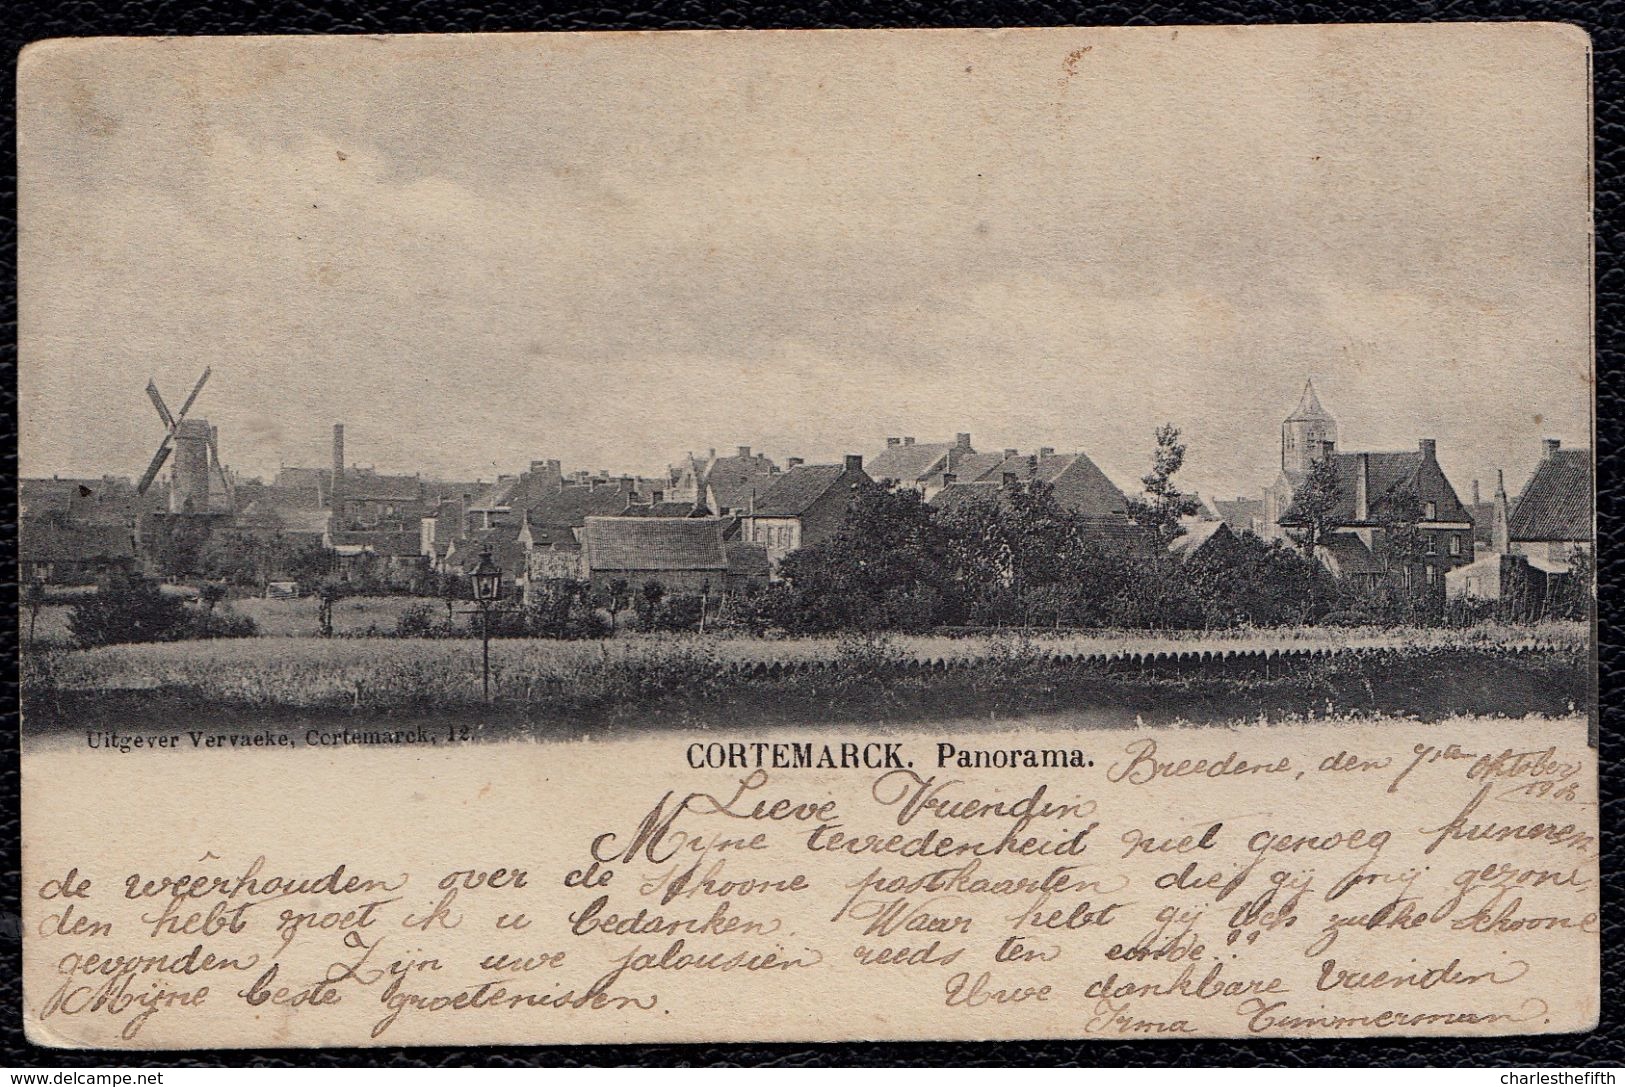 Uitgever Vervaeke, Cortemarck, 12.
CORTEMARCK. Panorama.
Breedene, den 7ste Oktober
Lieve Vriendin,
Mijne tevredenheid niet genoeg kunnen
de weêrhouden over de schoone postkaarten die gij mij gezon
den hebt moet ik u bedanken. Waar hebt gij zulke schoone
gevonden? Zijn uwe jalousiën reeds ten einde??
Mijne beste groetenissen. Uwe dankbare Vriendin
Irma Timmerman.
delcampe.net
charlesthefifth